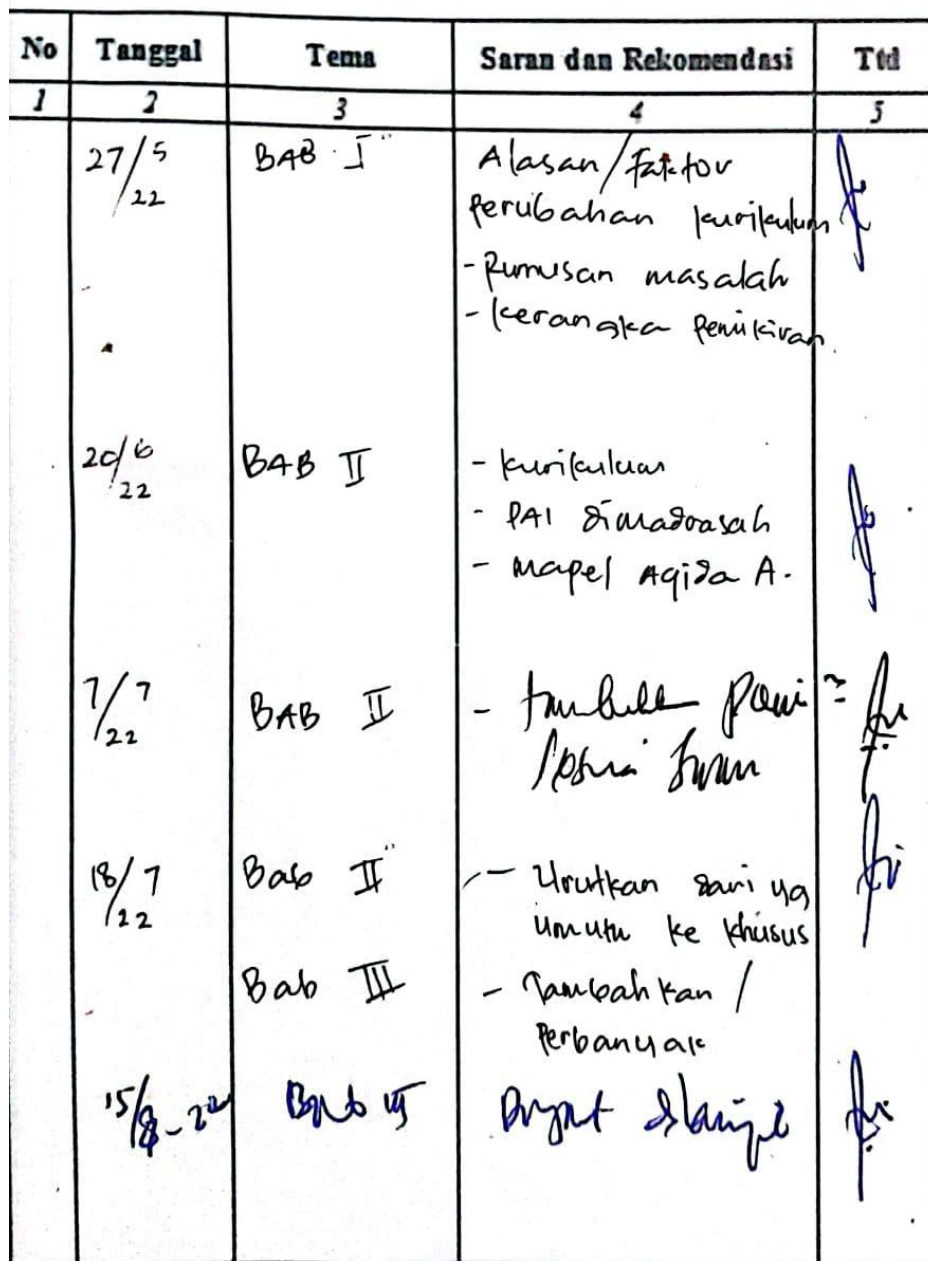 No Tanggal Tema Saran dan Rekomendasi Ttd
1 2 3 4 5
27/5/22 BAB I Alasan/Faktor
perubahan kurikulum
- Rumusan masalah
- kerangka pemikiran
20/6/22 BAB II - kurikulum
- PAI dimadrasah
- mapel Aqida A.
7/7/22 BAB II -
18/7/22 Bab II - Urutkan dari yg
umum ke khusus
Bab III - Tambahkan /
Perbanyak
15/8-22 Bab III